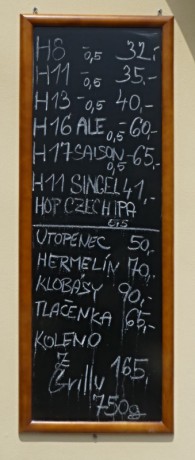 H8 - 0,5 32,-
H11 - 0,5 35,-
H13 - 0,5 40,-
H16 ALE 0,5 - 60,-
H17 SAISON 0,5 - 65,-
H11 SINGEL 41,-
HOP CZECH IPA
UTOPENEC 50,-
HERMELÍN 70,-
KLOBÁSY 90,-
TLAČENKA 65,-
KOLENO
Z 165,-
Grillu
750g